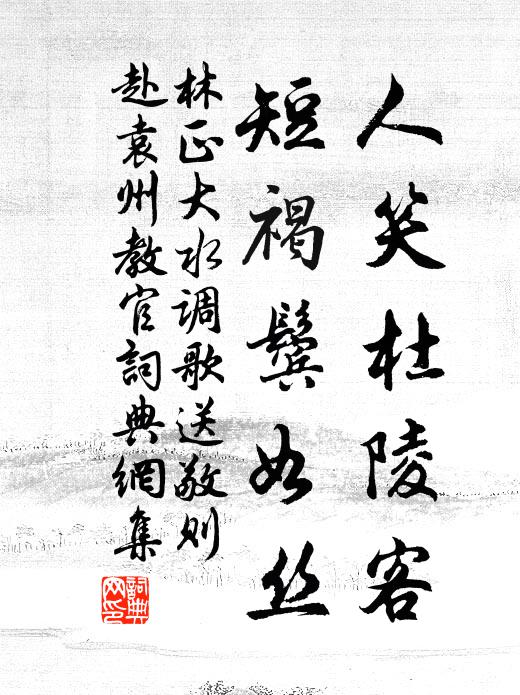 人笑杜陵客
短褐鬓如丝
林正大水调歌送敬则
赴袁州教官詞典網集
詞典网印